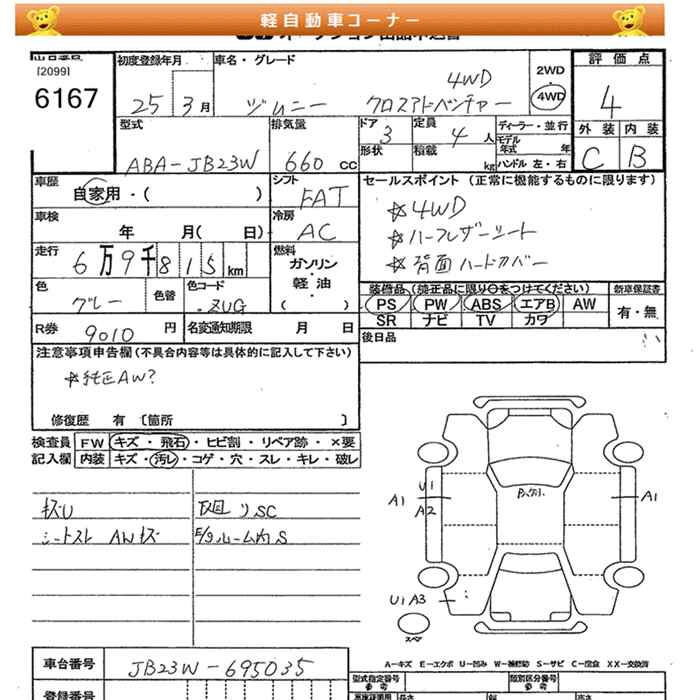 軽自動車コーナー
[2099]
6167
初度登録年月
25 3月
車名・グレード
ジムニー クロスアドベンチャー 4WD
2WD
4WD
評価点
4
外装 内装
C B
型式
ABA-JB23W
排気量
660 cc
ドア
3
定員
4 人
形状
積載
kg
ディーラー・並行
モデル年式 年
ハンドル 左・右
車歴
自家用・( )
シフト
FAT
セールスポイント (正常に機能するものに限ります)
☆4WD
☆ハーフレザーシート
☆背面ハードカバー
車検
年 月( 日)
冷房
AC
走行
6万9千815km
燃料
ガソリン・
軽油・
( )
色
グレー
色替
色コード
ZUG
装備品(純正品に限り○をつけてください)
PS PW ABS エアB AW
SR ナビ TV カワ
新車保証書
有・無
R券
9010 円
名変通知期限 月 日
後日品
注意事項申告欄(不具合内容等は具体的に記入して下さい)
☆純正AW?
修復歴 有 〔箇所 〕
検査員
記入欄
FW キズ・飛石・ヒビ割・リペア跡・×要
内装 キズ・汚レ・コゲ・穴・スレ・キレ・破レ
キズU
シートスレ AWキズ
下廻リSC
E/gルーム内S
A1
U1
A2
A1
U1 A3
スペア
A-キズ E-エクボ U-凹み W-補修跡 S-サビ C-腐食 XX-交換済
車台番号
JB23W-695035
登録番号
型式指定番号
参考
類別区分番号
参考
長さ
幅
高さ